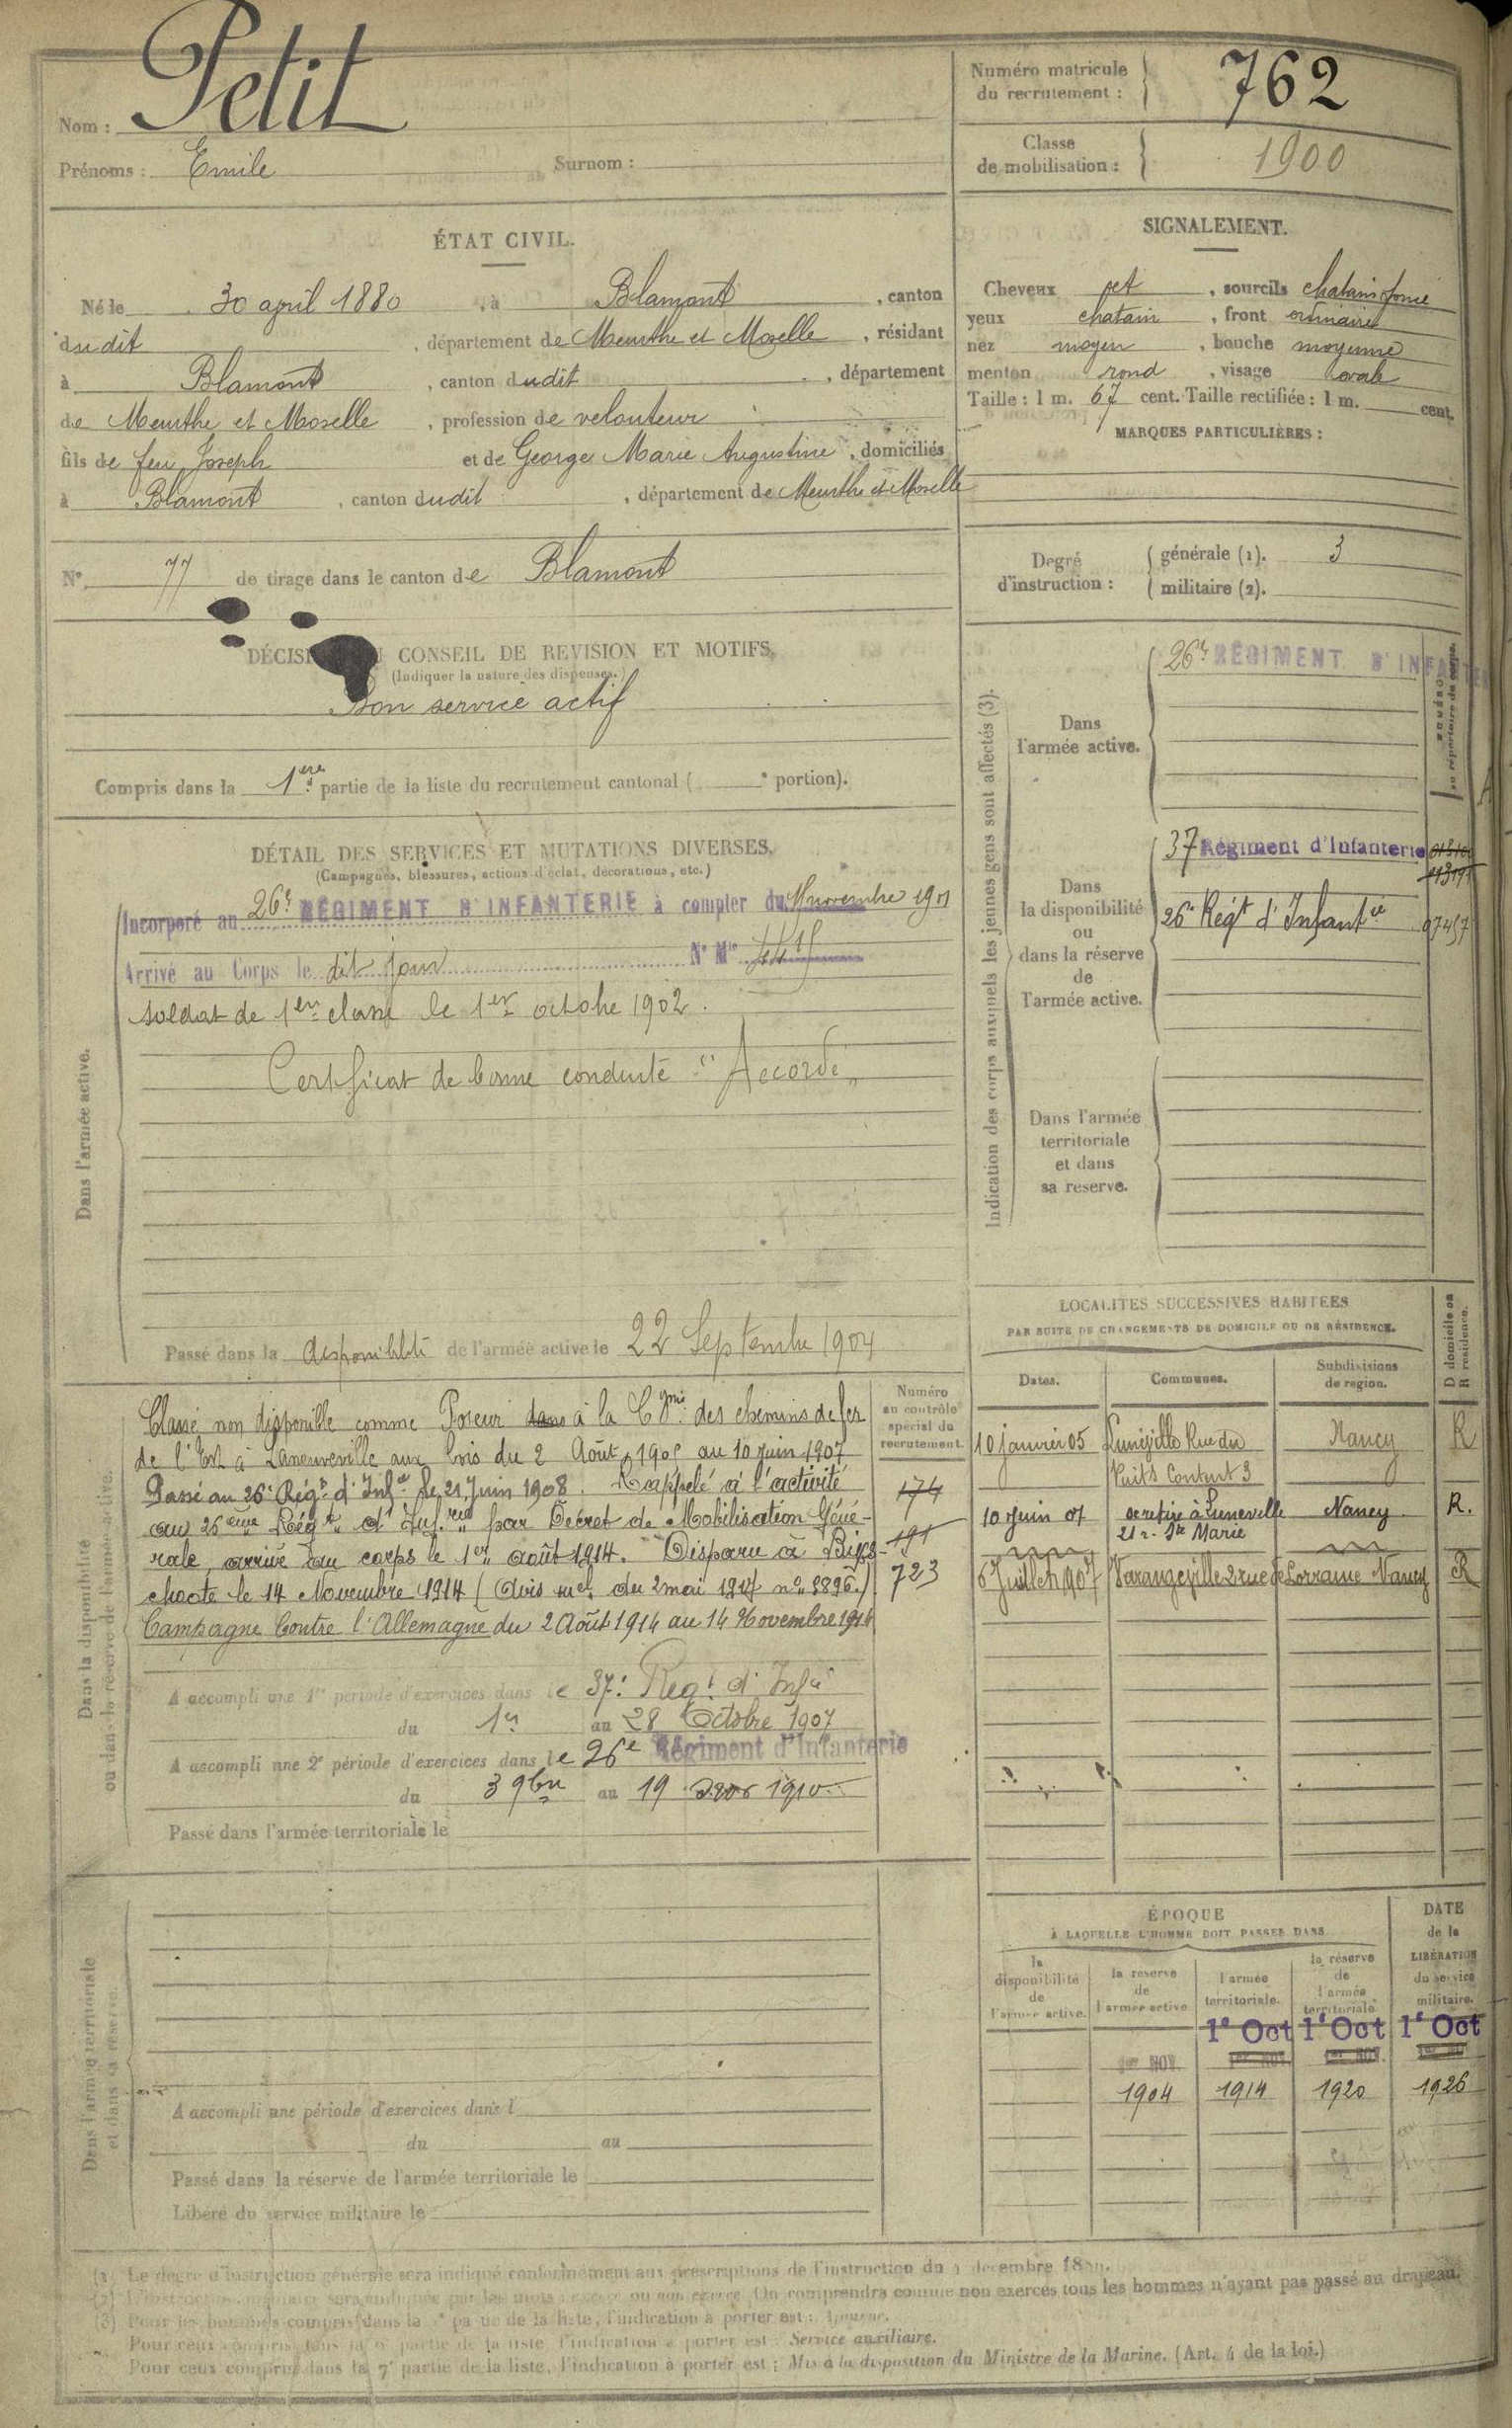 Nom : Petit
Prénoms : Emile Surnom :
Numéro matricule du recrutement : 762
Classe de mobilisation : 1900
ÉTAT CIVIL.
Né le 30 april 1880, à Blamont, canton
dudit, département de Meurthe et Moselle, résidant
à Blamont, canton dudit, département
de Meurthe et Moselle, profession de velouteur
fils de feu Joseph et de George Marie Augustine, domiciliés
à Blamont, canton dudit, département de Meurthe et Moselle
N° 77 de tirage dans le canton de Blamont
SIGNALEMENT.
Cheveux et, sourcils chatains foncé
yeux chatain, front ordinaire
nez moyen, bouche moyenne
menton rond, visage ovale
Taille : 1 m. 67 cent. Taille rectifiée : 1 m. cent.
MARQUES PARTICULIÈRES :
Degré d'instruction :
générale (1). 3
militaire (2).
CONSEIL DE REVISION ET MOTIFS.
(Indiquer la nature des dispenses.)
Bon service actif
Compris dans la 1ère partie de la liste du recrutement cantonal ( e portion).
DÉTAIL DES SERVICES ET MUTATIONS DIVERSES.
(Campagnes, blessures, actions d'éclat, décorations, etc.)
Incorporé au 26e RÉGIMENT D'INFANTERIE à compter du novembre 1901
Arrivé au Corps le dit jour N° Mle
soldat de 1ere classe le 1er octobre 1902.
Certificat de bonne conduite "Accordé"
Dans l'armée active.
Passé dans la disponibilité de l'armée active le 22 Septembre 1904
Indication des corps auxquels les jeunes gens sont affectés (3).
Dans l'armée active.
26e RÉGIMENT D'INFANTERIE
Dans la disponibilité ou dans la réserve de l'armée active.
37 Régiment d'Infanterie
26e Régt d'Infantie
Dans l'armée territoriale et dans sa reserve.
Dans la disponibilité
ou dans la réserve de l'armée active.
Classé non disponible comme Poseur dans à la Cgnie des chemins de fer
de l'Est à Laneuveville aux bois du 2 Août 1905 au 10 juin 1907
Passé au 26e Régt d'Infie le 21 Juin 1908. Rappelé à l'activité
au 26ème Régt d'Inf.rie par Décret de Mobilisation Géné-
rale, arrivé au corps le 1er août 1914. Disparu à Bixs-
choote le 14 Novembre 1914 (Avis mel du 2 mai 1917 n° 9896.)
Campagne Contre l'Allemagne du 2 Août 1914 au 14 Novembre 1914
Numéro au contrôle spécial du recrutement.
174
191
723
A accompli une 1re période d'exercices dans le 37e Régt d'Infie
du 1er au 28 Octobre 1907
A accompli une 2e période d'exercices dans le 26e Régiment d'Infanterie
du 3 9bre au 19 1910
Passé dans l'armée territoriale le
LOCALITÉS SUCCESSIVES HABITÉES
PAR SUITE DE CHANGEMENTS DE DOMICILE OU DE RÉSIDENCE.
Dates. Communes. Subdivisions de region. D domicile ou R residence.
10 janvier 05 Lunéville Rue du Puits Content 3 Nancy R
10 Juin 07 se retire à Luneville 21 r. Ste Marie Nancy R.
6 Juillet 1907 Varangeville 2 rue de Lorraine Nancy R
ÉPOQUE
À LAQUELLE L'HOMME DOIT PASSER DANS
la disponibilité de l'armée active.
la réserve de l'armée active
l'armée territoriale.
la réserve de l'armée territoriale.
DATE de la LIBÉRATION du service militaire.
1e Oct 1e Oct 1e Oct
1er NOV. 1er NOV. 1er NOV. 1er NOV.
1904 1914 1920 1926
Dans l'armée territoriale
et dans sa réserve.
A accompli une période d'exercices dans l
du au
Passé dans la réserve de l'armée territoriale le
Libéré du service militaire le
(1) Le degré d'instruction générale sera indiqué conformément aux prescriptions de l'instruction du
On comprendra comme non exercés tous les hommes n'ayant pas passé au drapeau.
(3) Pour les hommes compris dans la partie de la liste, l'indication à porter est :
Pour ceux compris dans la 6e partie de la liste l'indication à porter est : Service auxiliaire.
Pour ceux compris dans la 7e partie de la liste, l'indication à porter est : Mis à la disposition du Ministre de la Marine. (Art. 4 de la loi.)